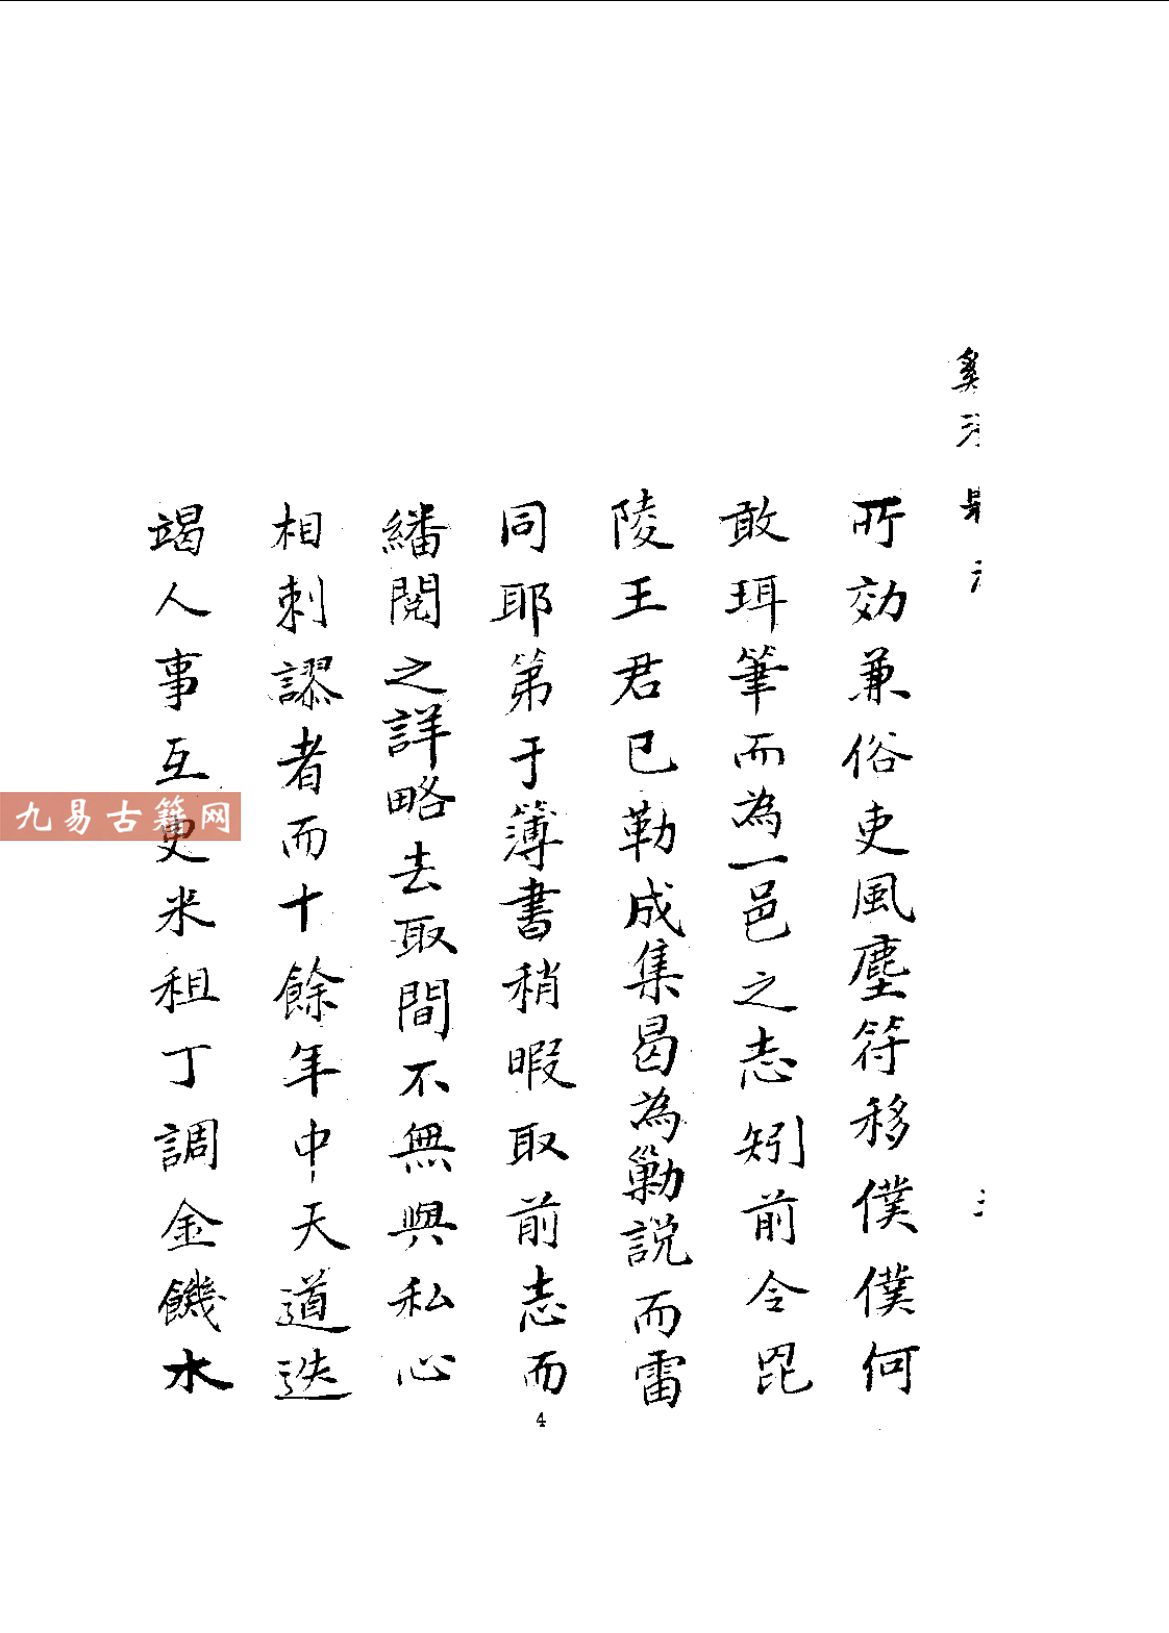 所效兼俗吏風塵符移僕僕何
敢珥筆而為一邑之志矧前令毘
陵王君已勒成集曷為勦説而雷
同耶第于簿書稍暇取前志而
繙閱之詳略去取間不無與私心
相刺謬者而十餘年中天道迭
竭人事互更米租丁調金饑水
4
九易古籍网